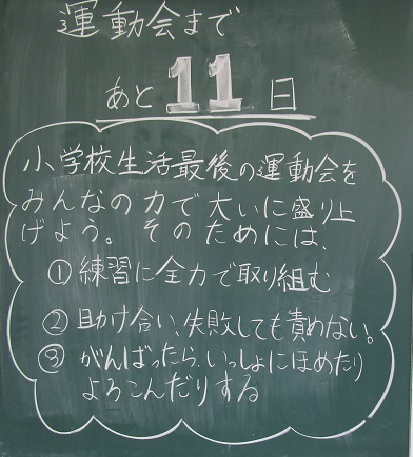 運動会まで
あと 11 日
小学校生活最後の運動会を
みんなの力で大いに盛り上
げよう。そのためには、
①練習に全力で取り組む
②助け合い、失敗しても責めない。
③がんばったら、いっしょにほめたり
よろこんだりする